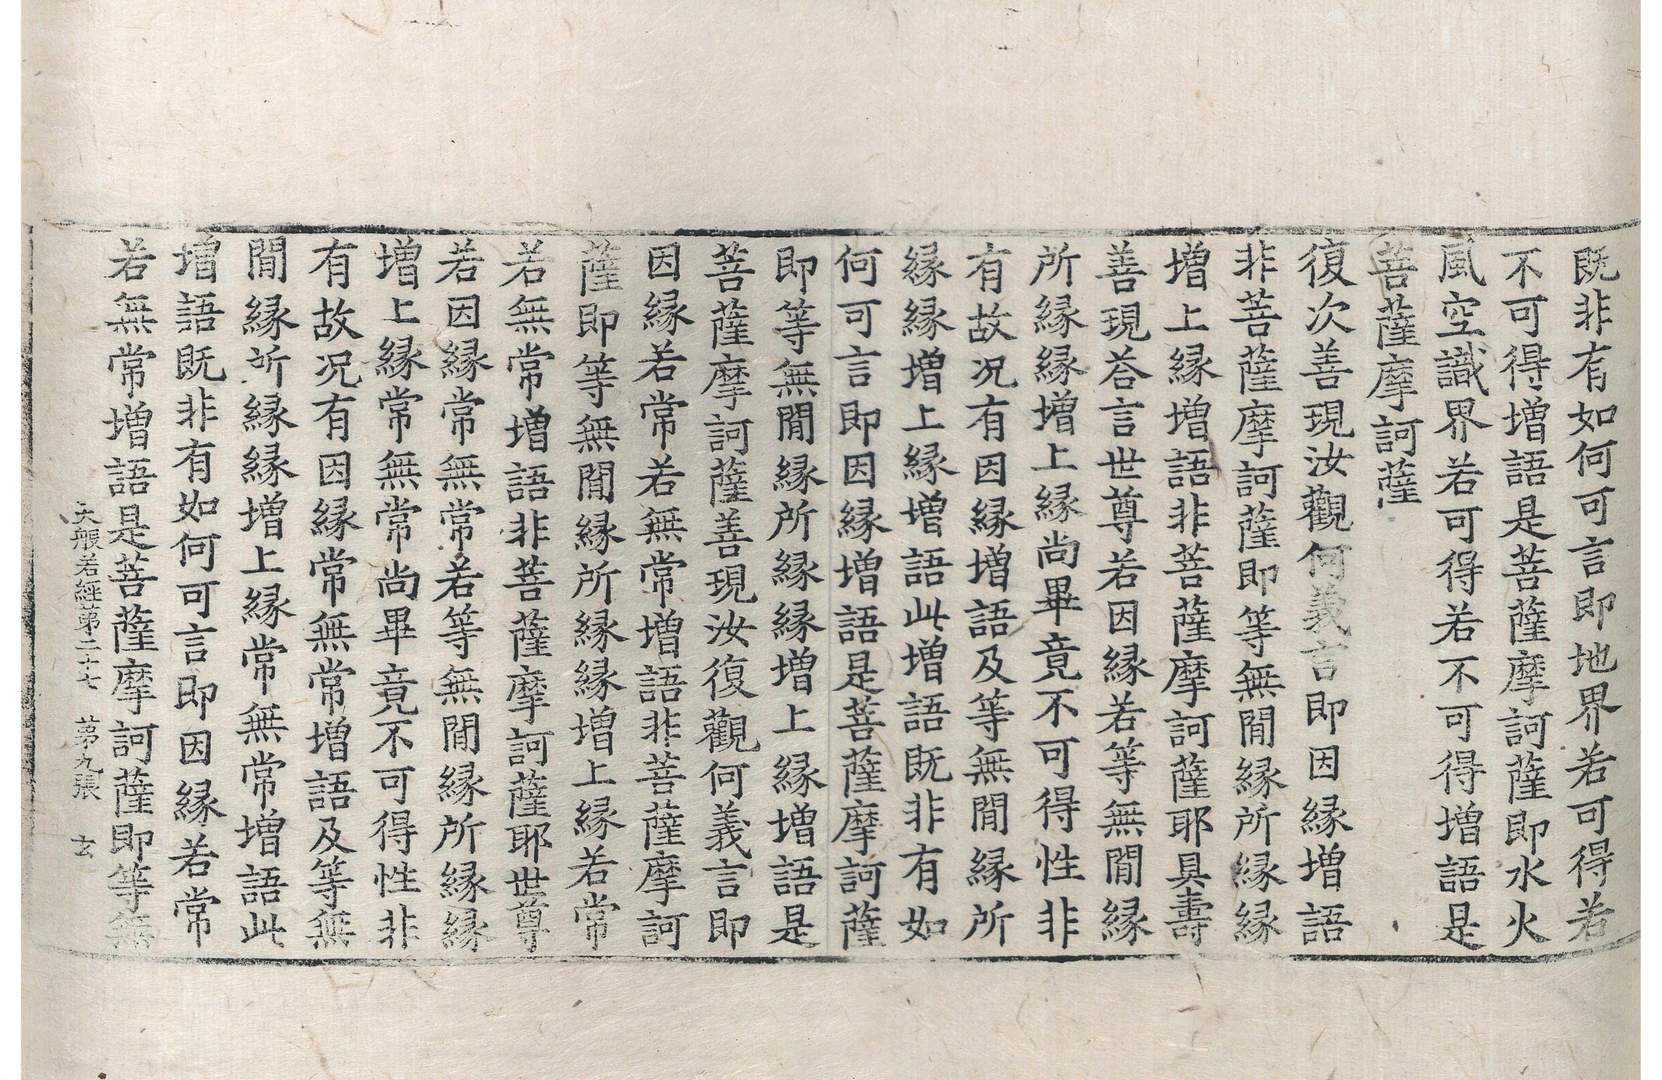 既非有如何可言即地界若可得若
不可得增語是菩薩摩訶薩即水火
風空識界若可得若不可得增語是
菩薩摩訶薩
復次善現汝觀何義言即因緣增語
非菩薩摩訶薩即等無間緣所緣緣
增上緣增語非菩薩摩訶薩耶具壽
善現荅言世尊若因緣若等無間緣
所緣緣增上緣尚畢竟不可得性非
有故况有因緣增語及等無間緣所
緣緣增上緣增語此增語既非有如
何可言即因緣增語是菩薩摩訶薩
即等無間緣所緣緣增上緣增語是
菩薩摩訶薩善現汝復觀何義言即
因緣若常若無常增語非菩薩摩訶
薩即等無間緣所緣緣增上緣若常
若無常增語非菩薩摩訶薩耶世尊
若因緣常無常若等無間緣所緣緣
增上緣常無常尚畢竟不可得性非
有故况有因緣常無常增語及等無
間緣所緣緣增上緣常無常增語此
增語既非有如何可言即因緣若常
若無常增語是菩薩摩訶薩即等無
大般若經第二十七 第九張 玄